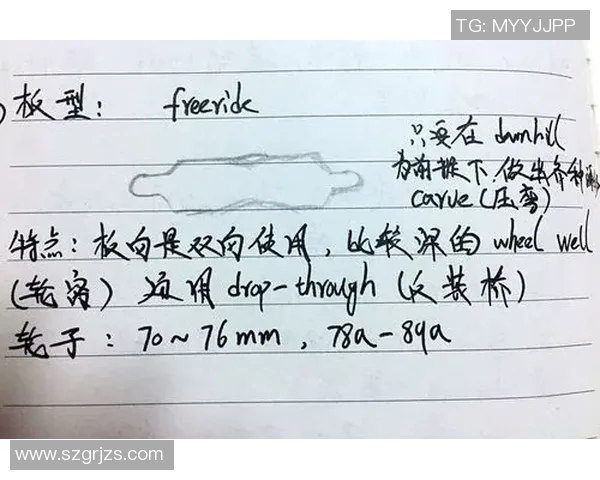 TG: MYYJJPP
板型： freeride
只要在 downhill
为前提下 做出各种
carve (压弯)
特点：板向是双向使用，比较深的 wheel well
(轮窝) 适用 drop-through (反装桥)
轮子：70~76mm，78a-89a
www.szgrjzs.com